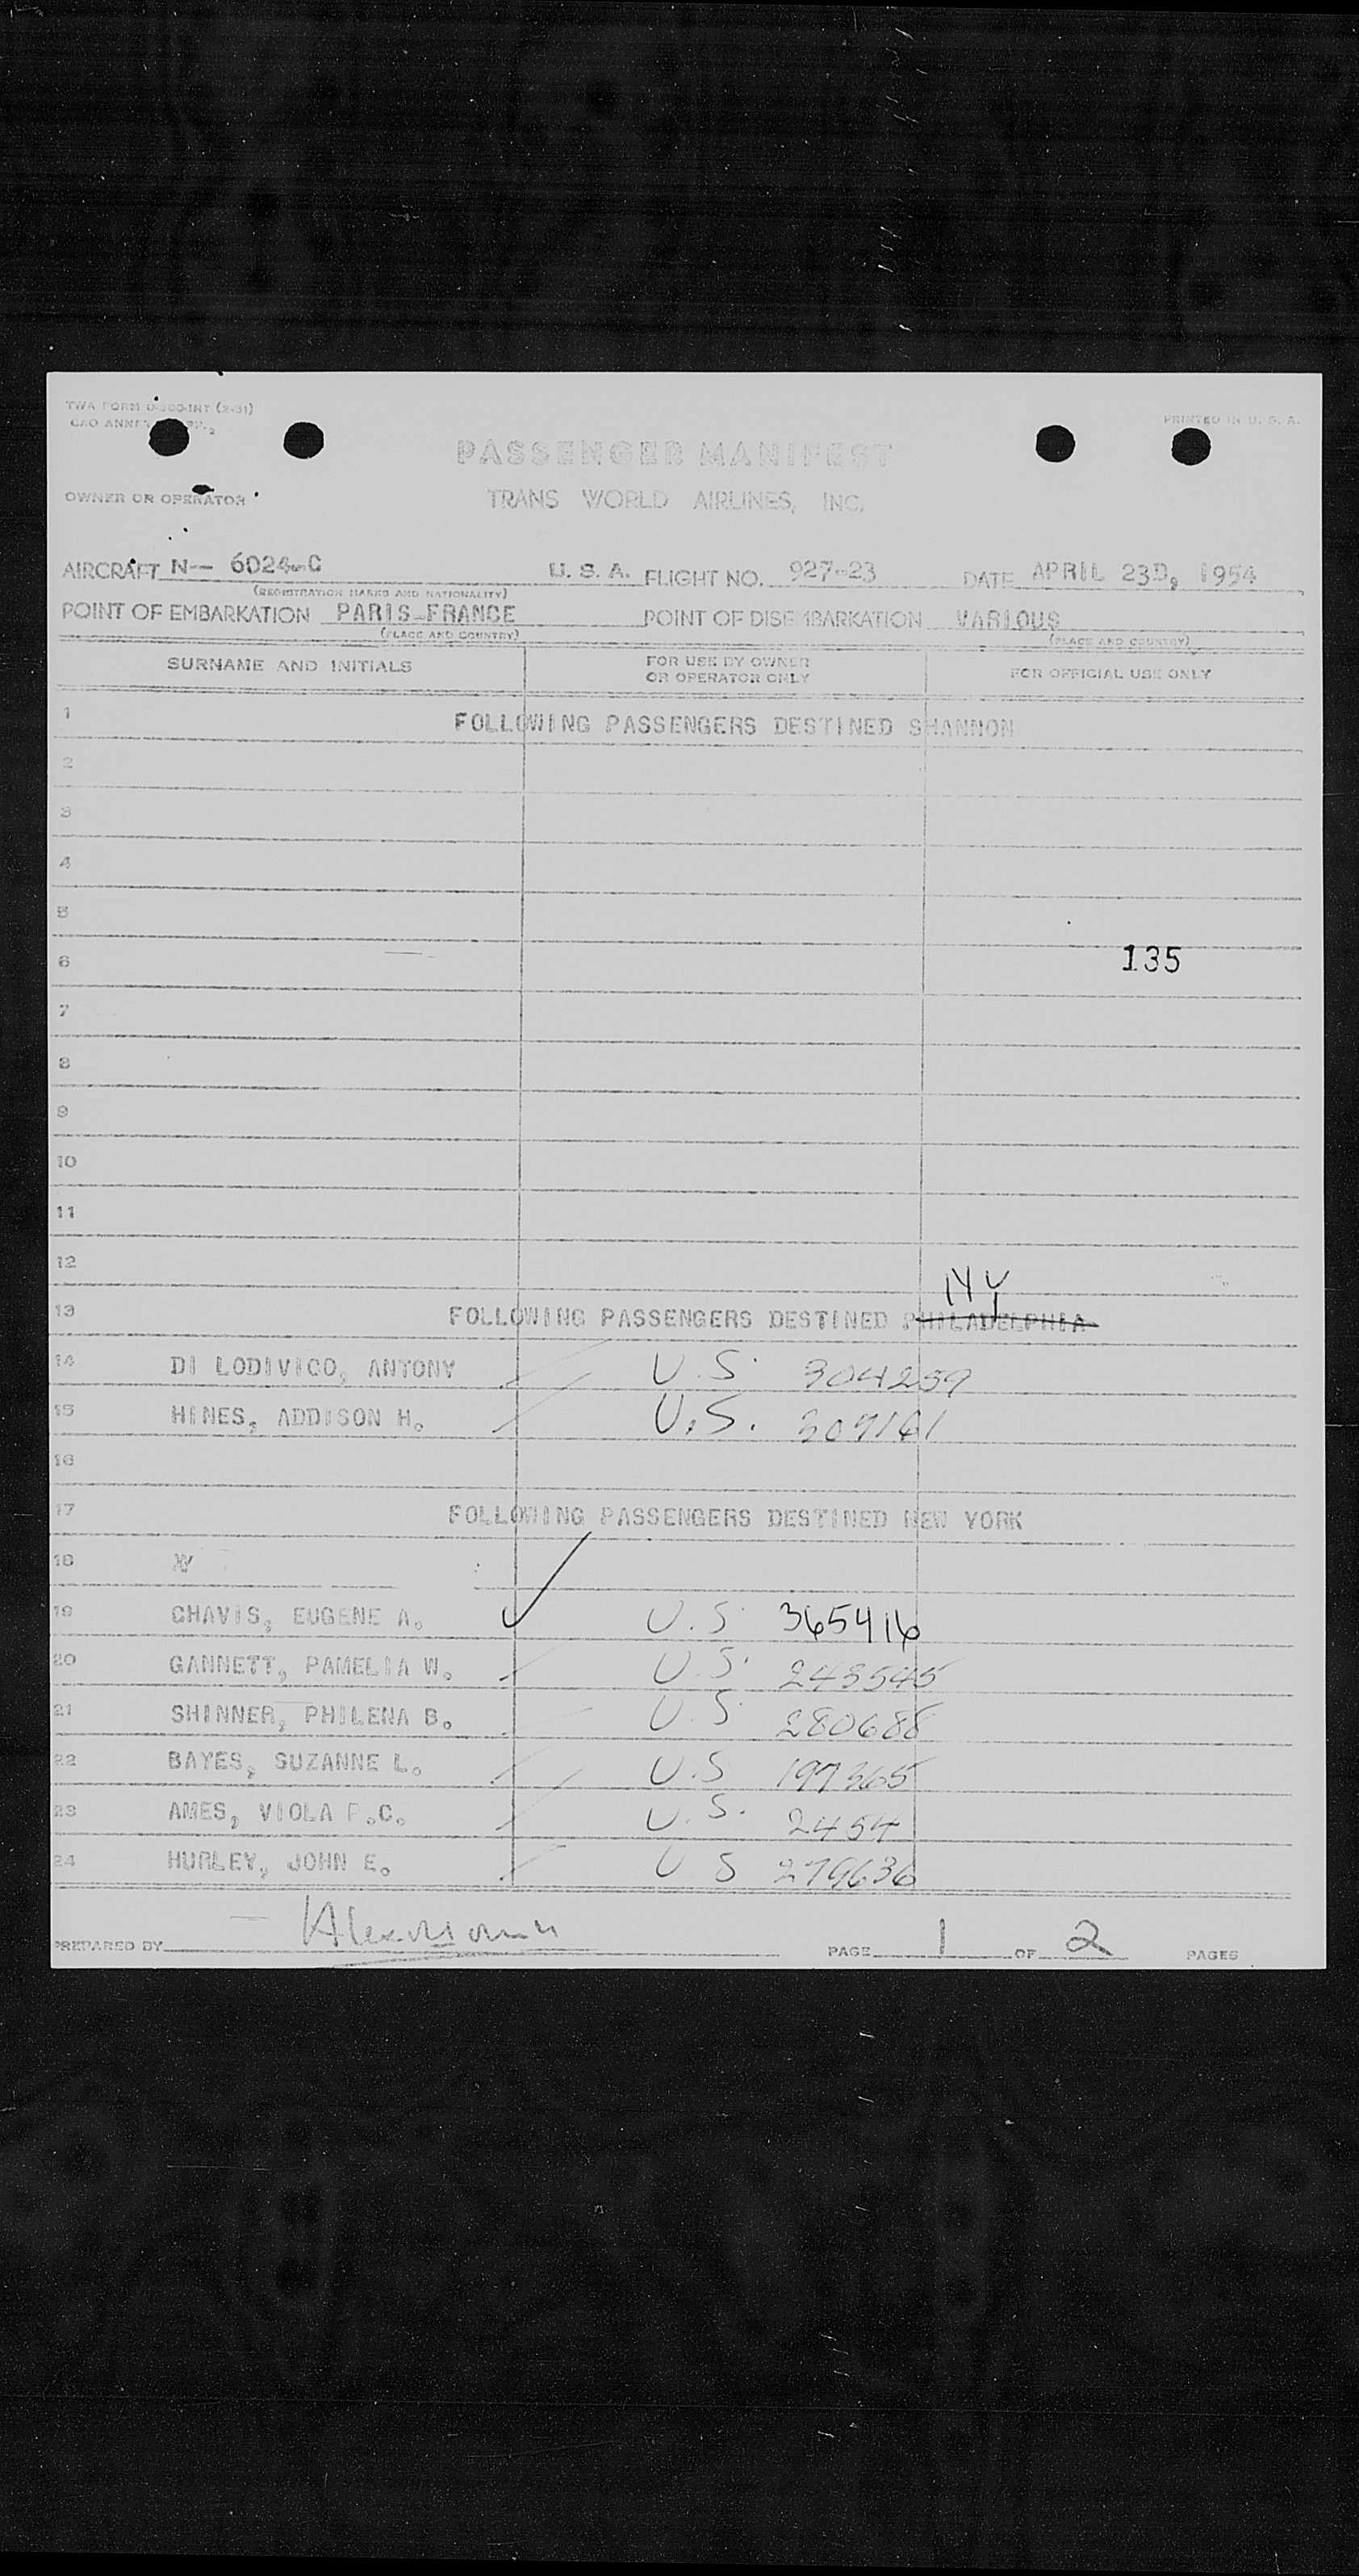 TWA FORM
PRINTED IN U. S. A.
CAO ANNEX
PASSENGER MANIFEST
OWNER OR OPERATOR TRANS WORLD AIRLINES, INC.
AIRCRAFT N-- 6024-C U. S. A. FLIGHT NO. 927-23 DATE APRIL 23D, 1954
(REGISTRATION MARKS AND NATIONALITY)
POINT OF EMBARKATION PARIS-FRANCE POINT OF DISEMBARKATION VARIOUS
(PLACE AND COUNTRY) (PLACE AND COUNTRY)
SURNAME AND INITIALS FOR USE BY OWNER OR OPERATOR ONLY FOR OFFICIAL USE ONLY
1 FOLLOWING PASSENGERS DESTINED SHANNON
2
3
4
5
6 135
7
8
9
10
11
12
NY
13 FOLLOWING PASSENGERS DESTINED PHILADELPHIA
14 DI LODIVICO, ANTONY U.S. 304259
15 HINES, ADDISON H. U.S.
16
17 FOLLOWING PASSENGERS DESTINED NEW YORK
18
19 CHAVIS, EUGENE A. U.S. 365416
20 GANNETT, PAMELIA W. U.S. 243545
21 SHINNER, PHILENA B. U.S. 280688
22 BAYES, SUZANNE L. U.S 197365
23 AMES, VIOLA P.C. U.S. 2454
24 HURLEY, JOHN E. U S 279636
PREPARED BY PAGE 1 OF 2 PAGES